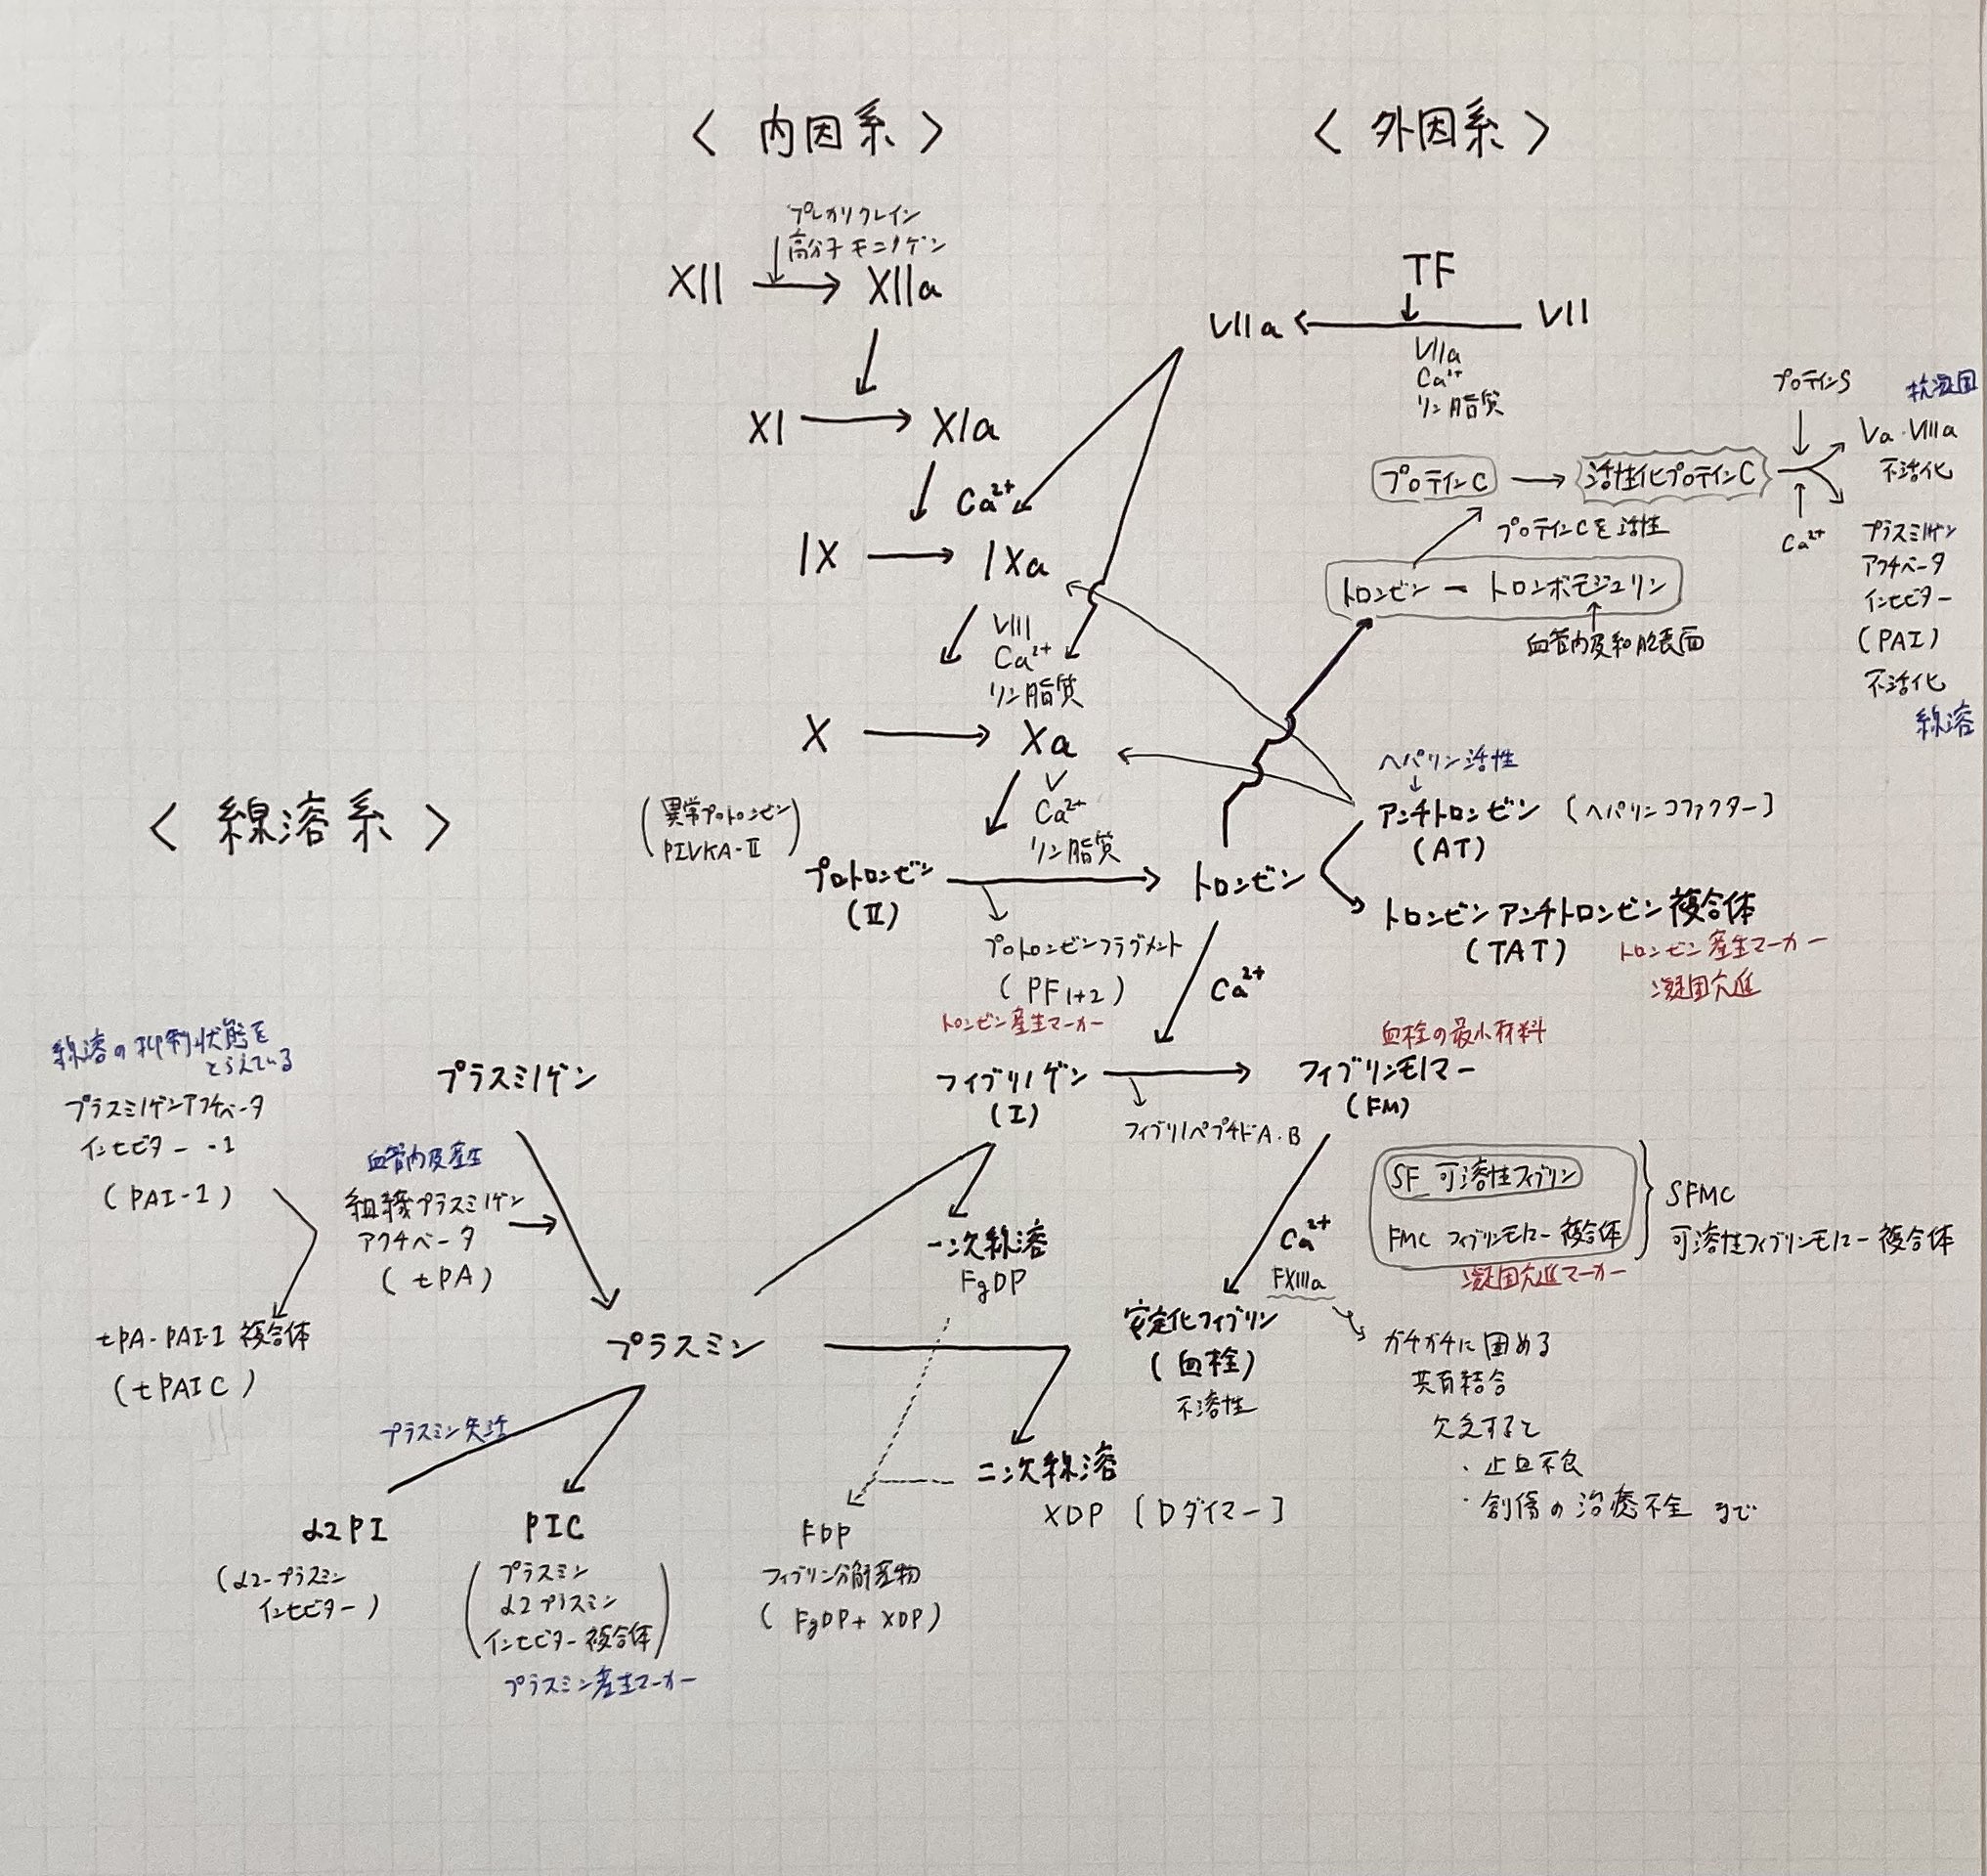 < 内因系 >
< 外因系 >
プレカリクレイン
高分子モニノゲン
XII
XIIa
TF
VIIa
VII
VIIa
Ca²⁺
リン脂質
XI
XIa
Ca²⁺
IX
IXa
VIII
Ca²⁺
リン脂質
X
Xa
V
Ca²⁺
リン脂質
プロテインS
抗凝固
Va・VIIIa
不活化
プロテインC
活性化プロテインC
プロテインCを活性
Ca²⁺
プラスミノゲン
アクチベータ
インヒビター
(PAI)
不活化
線溶
トロンビン ー トロンボモジュリン
血管内皮細胞表面
ヘパリン活性
アンチトロンビン [ヘパリンコファクター]
(AT)
(異常プロトロンビン
PIVKA-II)
プロトロンビン
(II)
トロンビン
トロンビンアンチトロンビン複合体
(TAT)
トロンビン産生マーカー
凝固亢進
プロトロンビンフラグメント
(PF1+2)
トロンビン産生マーカー
Ca²⁺
血栓の最小材料
フィブリノゲン
(I)
フィブリンモノマー
(FM)
フィブリノペプチドA・B
SF 可溶性フィブリン
FMC フィブリンモノマー複合体
凝固亢進マーカー
SFMC
可溶性フィブリンモノマー複合体
Ca²⁺
FXIIIa
安定化フィブリン
(血栓)
不溶性
ガチガチに固める
共有結合
欠乏すると
・止血不良
・創傷の治癒不全 まで
< 線溶系 >
線溶の抑制状態を
とらえている
プラスミノゲンアクチベータ
インヒビター -1
(PAI-1)
プラスミノゲン
血管内皮産生
組織プラスミノゲン
アクチベータ
(tPA)
tPA-PAI-1 複合体
(tPAIC)
プラスミン
一次線溶
FgDP
二次線溶
XDP [Dダイマー]
プラスミン失活
α2PI
(α2-プラスミン
インヒビター)
PIC
(プラスミン
α2プラスミン
インヒビター複合体)
プラスミン産生マーカー
FDP
フィブリン分解産物
(FgDP + XDP)